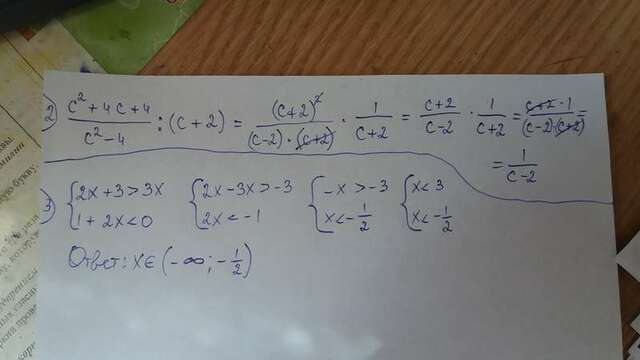 2) (c² + 4c + 4)/(c² - 4) : (c + 2) = (c+2)²/((c-2)·(c+2)) · 1/(c+2) = (c+2)/(c-2) · 1/(c+2) = (c+2·1)/((c-2)(c+2)) =
= 1/(c-2)
3) {2x+3>3x {2x-3x>-3 {-x>-3 {x<3
{1+2x<0 {2x<-1 {x<-1/2 {x<-1/2
Ответ: x∈(-∞; -1/2)